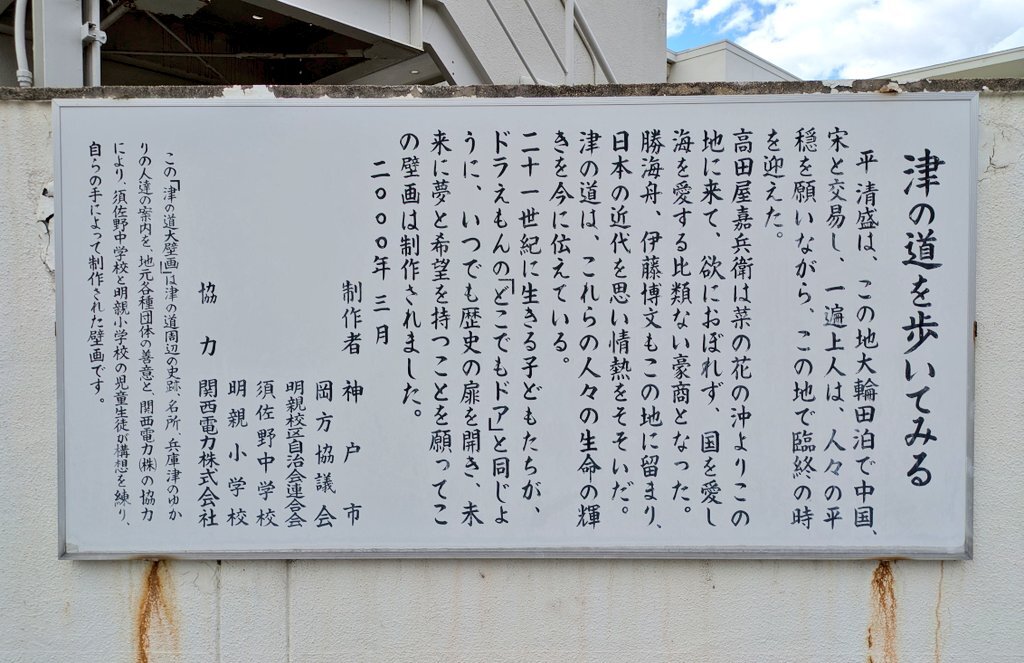 津の道を歩いてみる
平 清盛は、この地大輪田泊で中国、
宋と交易し、一遍上人は、人々の平
穏を願いながら、この地で臨終の時
を迎えた。
高田屋嘉兵衛は菜の花の沖よりこの
地に来て、欲におぼれず、国を愛し
海を愛する比類ない豪商となった。
勝海舟、伊藤博文もこの地に留まり、
日本の近代を思い情熱をそそいだ。
津の道は、これらの人々の生命の輝
きを今に伝えている。
二十一世紀に生きる子どもたちが、
ドラえもんの「どこでもドア」と同じよ
うに、いつでも歴史の扉を開き、未
来に夢と希望を持つことを願ってこ
の壁画は制作されました。
二〇〇〇年 三月
制作者 神戸市
岡方協議会
明親校区自治会連合会
須佐野中学校
明親小学校
協力 関西電力株式会社
この「津の道大壁画」は津の道周辺の史跡、名所、兵庫津のゆか
りの人達の案内を、地元各種団体の善意と、関西電力㈱の協力
により、須佐野中学校と明親小学校の児童生徒が構想を練り、
自らの手によって制作された壁画です。